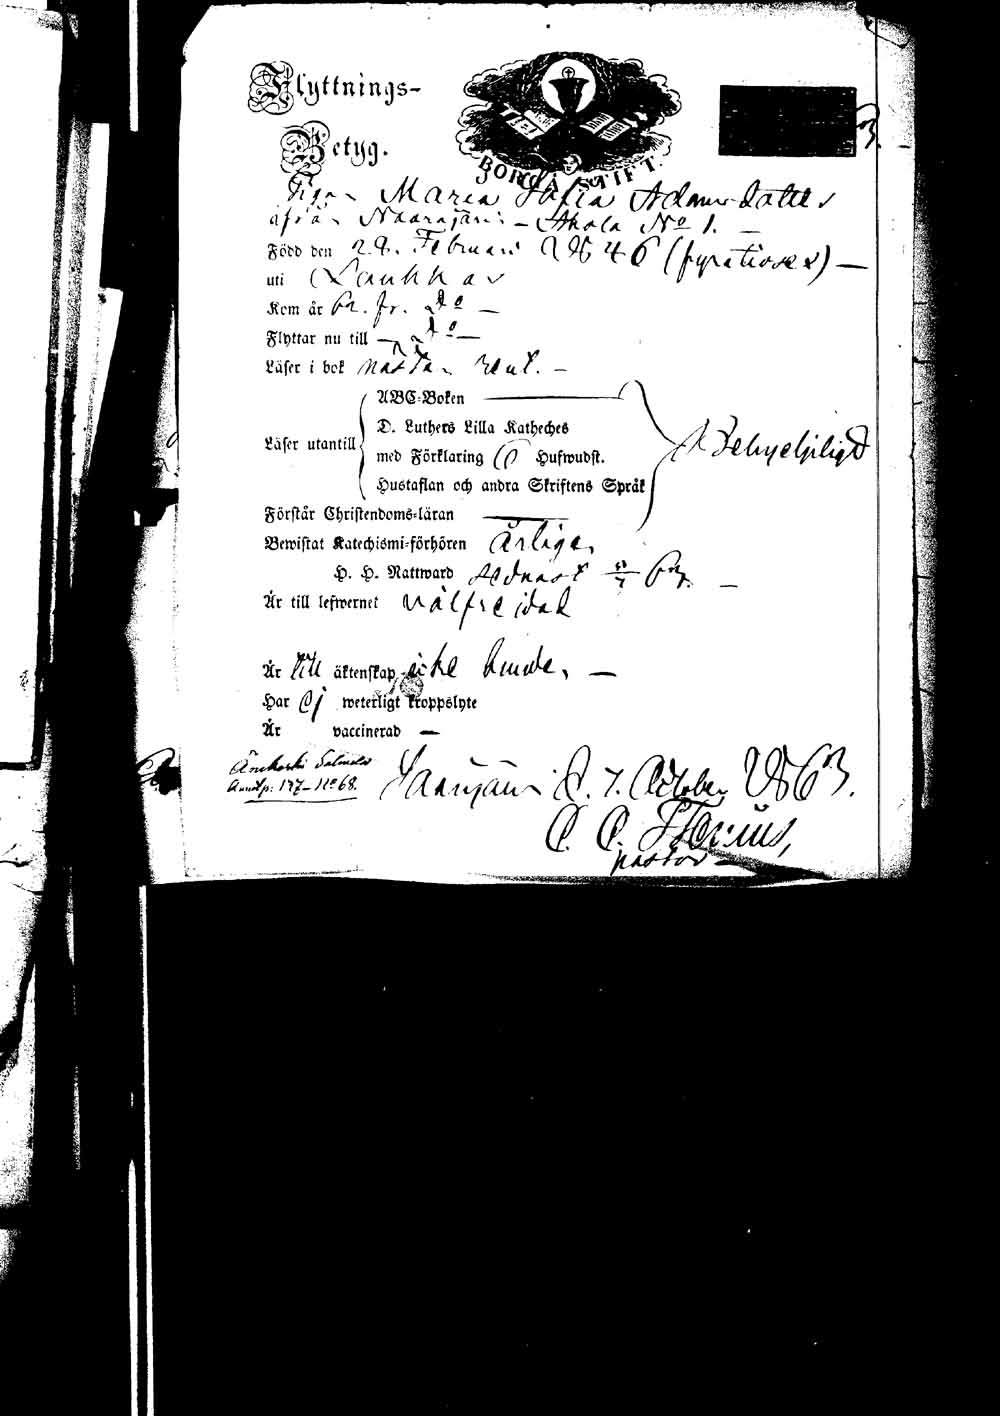 Flyttnings-
Betyg.
BORGÅ STIFT.
Pigan Maria Sofia Adamsdotter
ifrån Naarajärvi - Skola No 1. —
Född den 28. Februari 1846 (fyratiosex) —
uti Laukkas
Kom år 62. fr. do —
Flyttar nu till — do —
Läser i bok nästan rent. —
ABC-Boken
D. Luthers Lilla Katheches
Läser utantill
med Förklaring 6 Hufwudst.
Hustaflan och andra Skriftens Språk
Behjelpligt
Förstår Christendoms-läran
Bewistat Katechismi-förhören årligen
H. H. Nattward sednast 63. —
Är till lefwernet välfrejdad
Är till äktenskap icke bunden. —
Har ej weterligt kroppslyte
Är vaccinerad —
Änckoski Salmela
pag: 197 - No 68.
Saarijärvi d. 7. Oktober 1863.
pastor